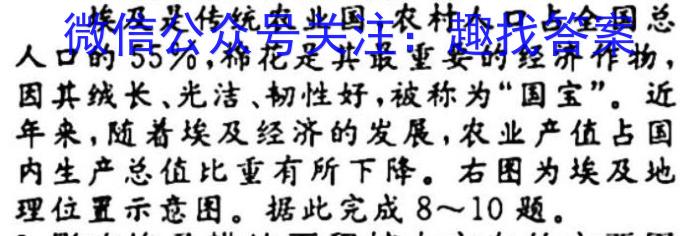 埃及是传统农业国,农村人口占全国总
微信公众号关注:趣找答案
人口的55%,棉花是其最重要的经济作物,
因其绒长、光洁、韧性好,被称为“国宝”。近
年来,随着埃及经济的发展,农业产值占国
内生产总值比重有所下降。右图为埃及地
理位置示意图。据此完成8～10题。